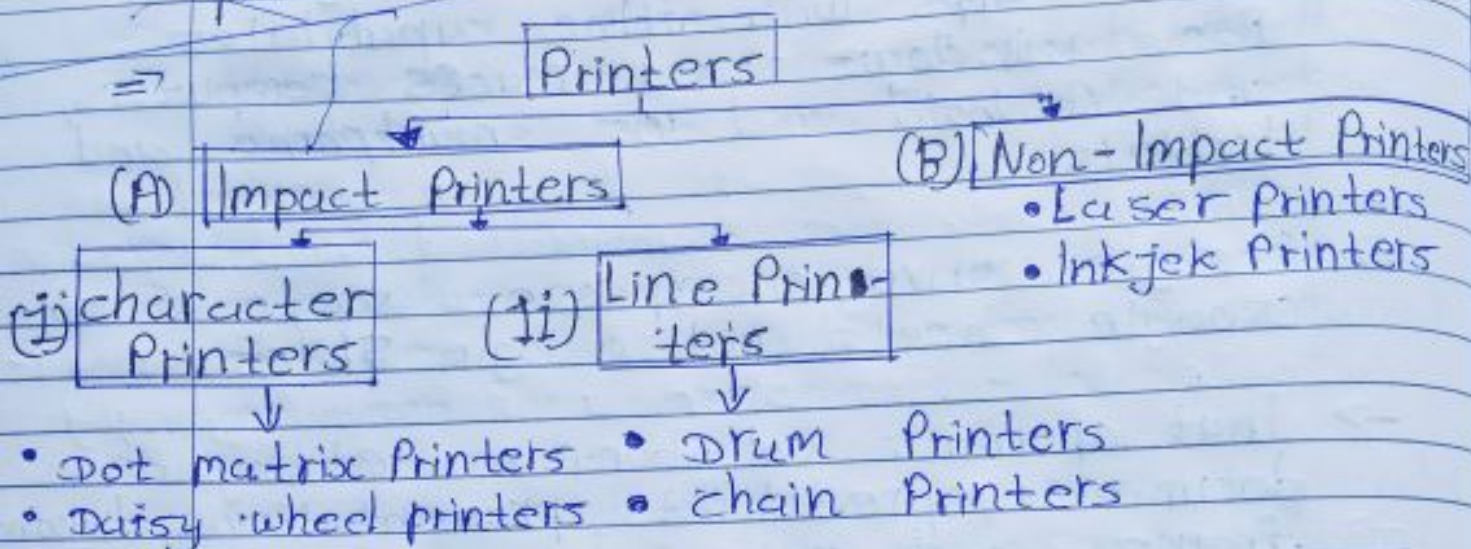 ⇒ Printers
(A) Impact Printers
(B) Non-Impact Printers
• Laser Printers
• Inkjek Printers
(i) character
Printers
(ii) Line Prin-
ters
• Dot matrix Printers
• Daisy wheel printers
• Drum Printers
• chain Printers